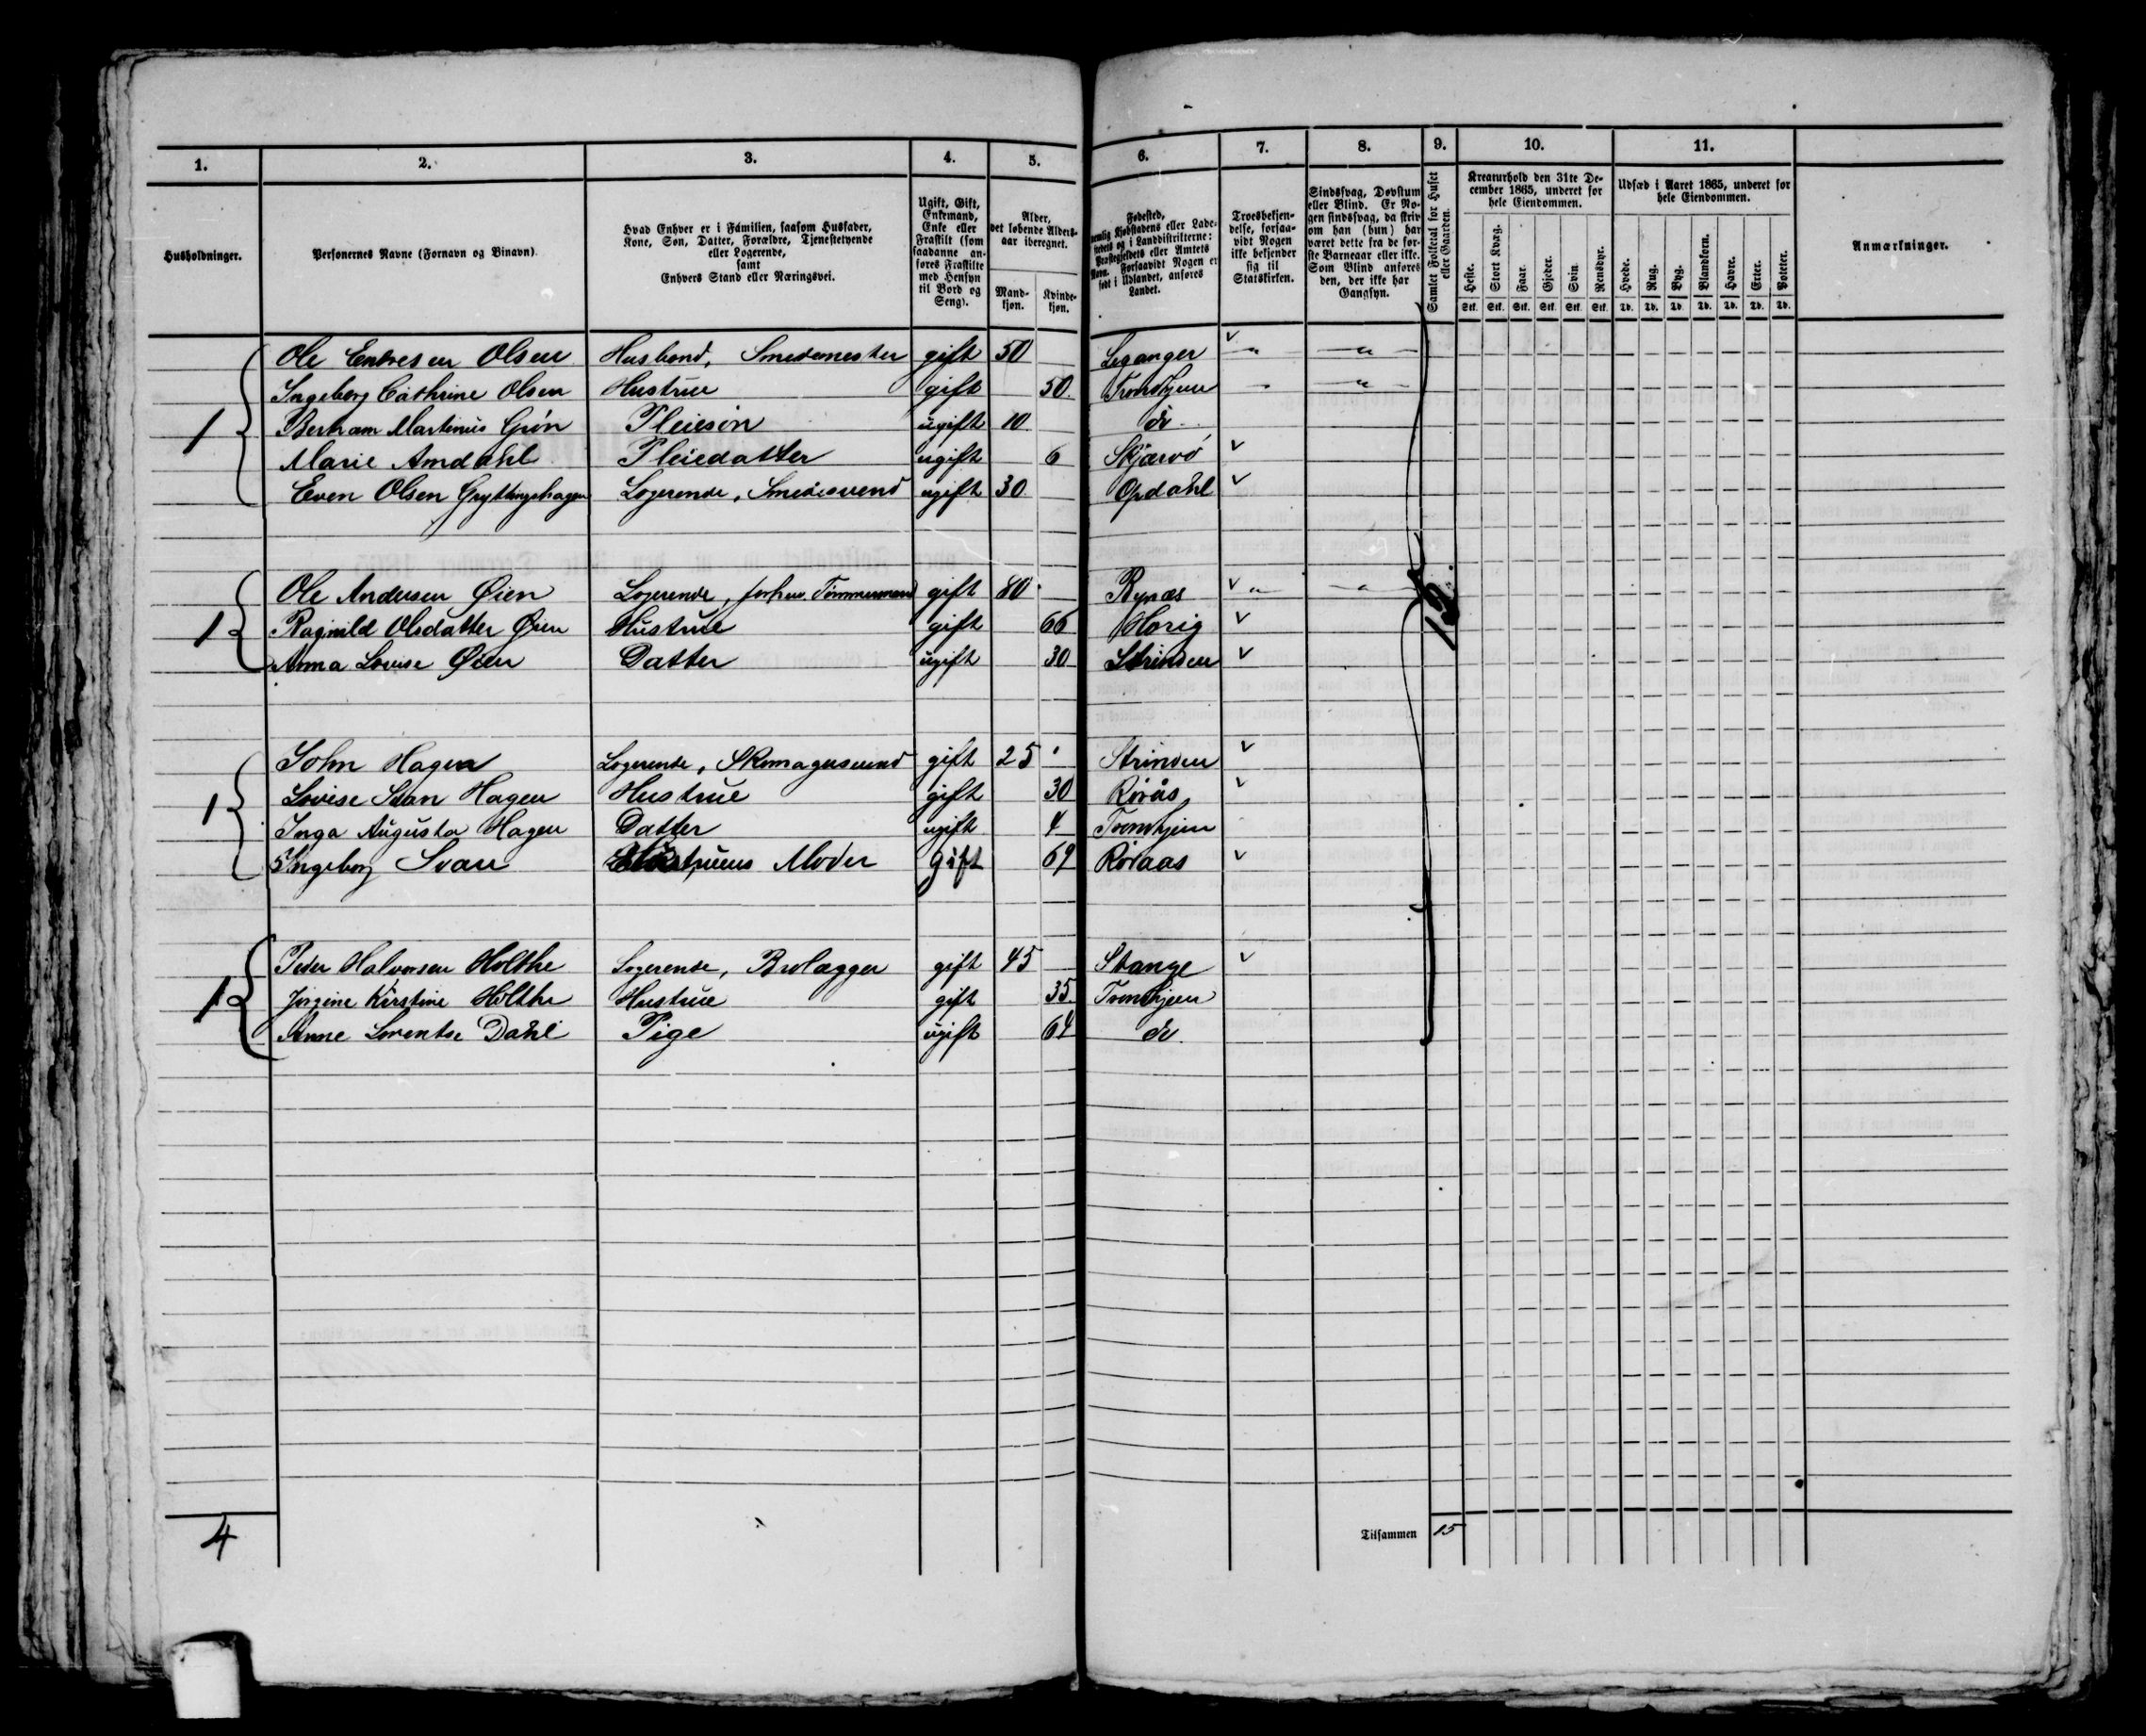 1. 2. 3. 4. 5. 6. 7. 8. 9. 10. 11.
Husholdninger.
Personernes Navne (Fornavn og Binavn)
Hvad Enhver er i Familien, saasom Husfader,
Kone, Søn, Datter, Forældre, Tjenestetyende
eller Logerende,
samt
Enhvers Stand eller Næringsvei.
Ugift, Gift,
Enkemand,
Enke eller
Fraskilt (som
saadanne an-
føres Fraskilte
med Hensyn
til Bord og
Seng).
Alder,
det løbende Alders-
aar iberegnet.
Mand-
kjøn.
Kvinde-
kjøn.
Fødested,
nemlig Kjøbstadens eller Lade-
stedets og i Landdistrikterne:
Præstegjeldets eller Amtets
Navn. Forsaavidt Nogen er
født i Udlandet, anføres
Landet.
Troesbekjen-
delse, forsaa-
vidt Nogen
ikke bekjender
sig til
Statskirken.
Sindssvag, Døvstum
eller Blind. Er No-
gen sindssvag, da skriv
om han (hun) har
været dette fra de før-
ste Barneaar eller ikke.
Som Blind anføres
den, der ikke har
Gangsyn.
Samlet Folketal for Huset
eller Gaarden.
Kreaturhold den 31te De-
cember 1865, underet for
hele Eiendommen.
Heste. Stort Kvæg. Faar. Gjeder. Svin. Rensdyr.
Stk. Stk. Stk. Stk. Stk. Stk.
Udsæd i Aaret 1865, underet for
hele Eiendommen.
Hvede. Rug. Byg. Blandkorn. Havre. Erter. Poteter.
Td. Td. Td. Td. Td. Td. Td.
Anmærkninger.
Ole Endresen Olsen Husbond, Smedemester gift 50 Leganger
Ingeborg Cathrine Olsen Hustrue gift 50 Trondhjem
1 Bertram Martinius Grøn Pleiesøn ugift 10 do
Marie Amdahl Pleiedatter ugift 6 Skjærvø
Even Olsen Logerende, Smedesvend ugift 30 Opdahl
Ole Andersen Øien Logerende, Tømmermand gift 80 Bynæs
1 Ragnild Olsdatter Øien Hustrue gift 66
Anna Lovise Øien Datter ugift 30 Strinden
John Hagen Logerende, Skomagersvend gift 25 Strinden
1 Lovise Svan Hagen Hustrue gift 30 Rørås
Inga Augusta Hagen Datter ugift 4 Trondhjem
Ingeborg Svan Hustruens Moder Gift 69 Røraas
Peder Halvorsen Holthe Logerende, Brolægger gift 45 Stange
1 Jørgine Kirstine Holthe Hustrue gift 35 Trondhjem
Anne Lorentse Dahl Pige ugift 64 do
4
Tilsammen 15